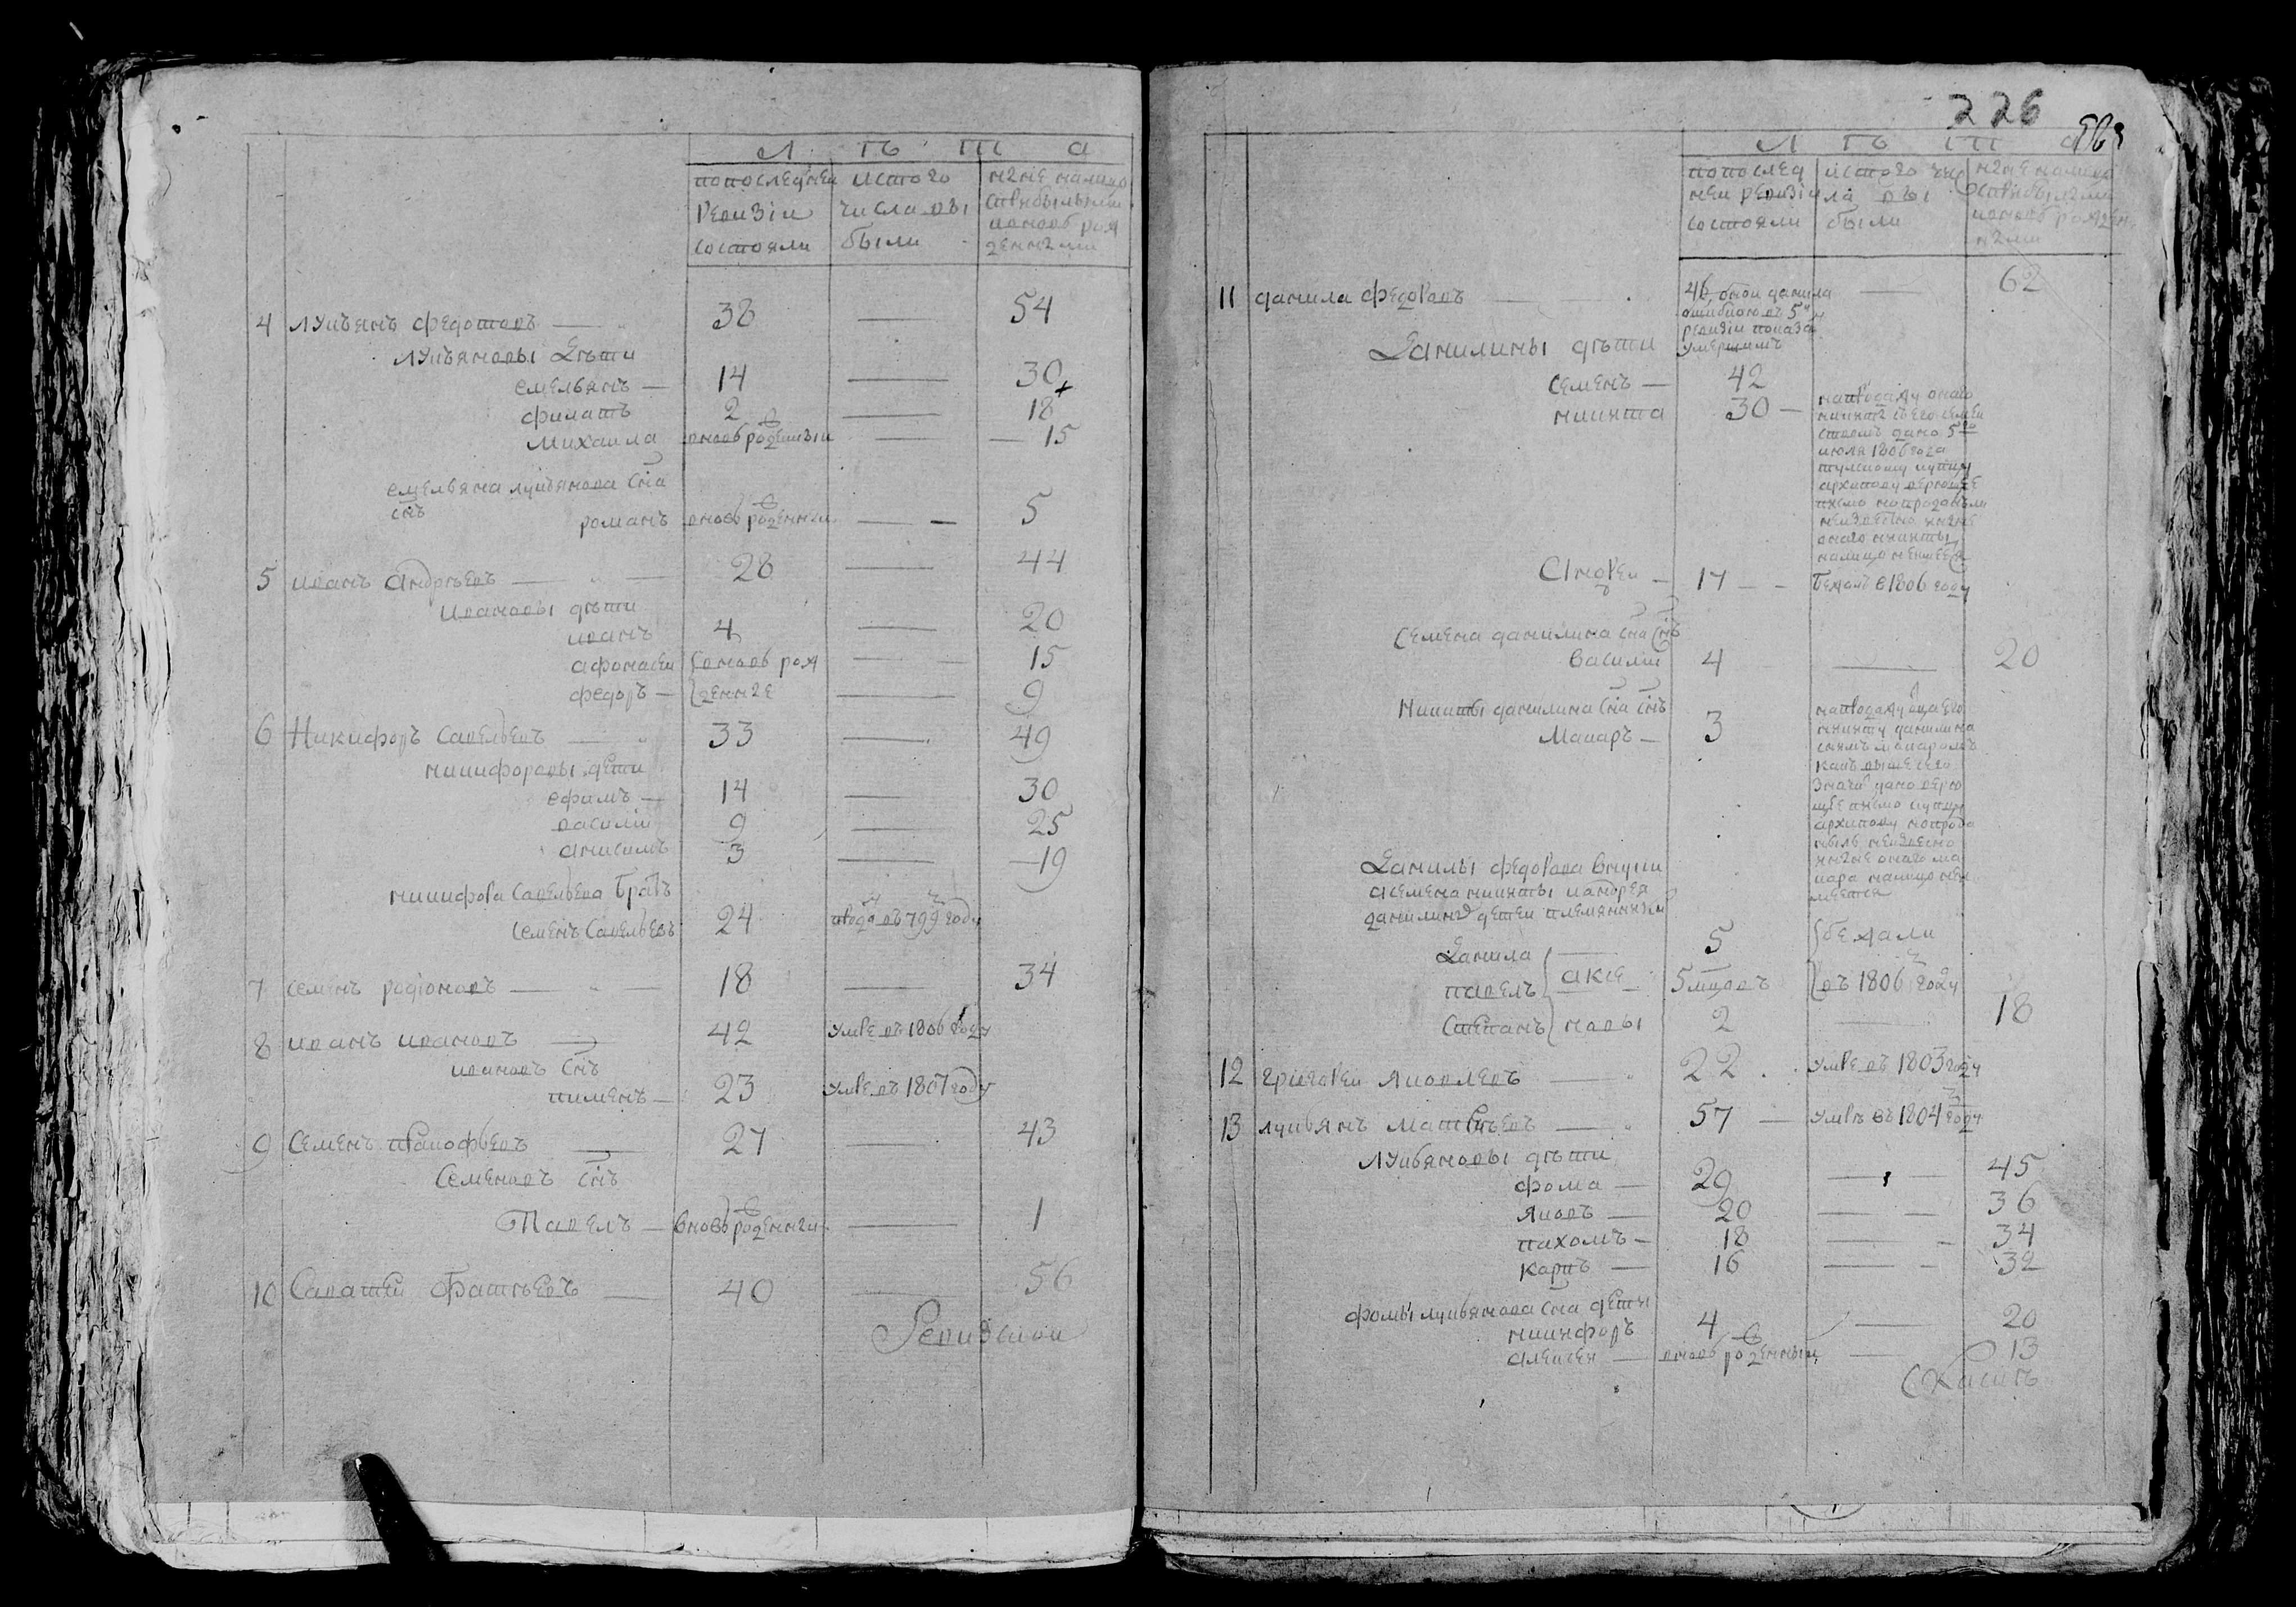 Л ѣ т а
попоследнеи
Ревизіи
состояли
истого
числа вы
были
ныне налицо
рожденными
4 лукьянъ федотовъ 38 — 54
лукьяновы дѣти
емельянъ — 14 — 30
филатъ 2 — 18
Михаила вновь рожденныи — 15
емельяна лукьянова сна
снъ
романъ вновь рожденныи — 5
5 иванъ андрѣевъ — 28 — 44
ивановы дѣти
иванъ 4 — 20
афонасеи вновь рож — 15
федоръ — денные — 9
6 Никифоръ савельевъ — 33 — 49
никифоровы дети
ефимъ — 14 — 30
василіи 9 — 25
анисимъ 3 — 19
никифора савельева братъ
семенъ савельевъ 24 въ 799 году
7 семенъ родіоновъ — 18 — 34
8 иванъ ивановъ — 42 умре въ 1806 году
ивановъ снъ
пименъ — 23 умре въ 1807 году
9 Семенъ — 27 — 43
Семеновъ снъ
Павелъ — вновь рожденныи — 1
10 Саватеи — 40 — 56
Ревизскои
226
Л ѣ т а
попослед
неи ревизіи
состояли
истого чис
ла вы
были
ныне налицо
рожден
ными
11 данила федоровъ — 46 онои данила — 62
ошибкою въ 5й
ревизіи показа
умершимъ
Данилины дѣти
семенъ — 42
никита 30 —
оного
никиту съ его семеи
ствомъ дано 5го
июля 1806 года
тульскому купцу
архипову верющее
писмо
неизвесно ныне
оного никиты
налицо
Андреи — 17 — бежалъ в 1806 году
Семена данилина сна снъ
василіи 4 — 20
Никиты данилина сна снъ
Макаръ — 3
отца его
никиту данилина
сыномъ макаромъ
какъ выше сего
дано верю
щее писмо купцу
архипову
неизвесно
ныне оного ма
кара налицо неи
меетца
Данилы федорова внуки
а семена никиты иандрея
данилиныхъ детеи племянники
Данила — 5 бежали
павелъ аки 5 мцовъ въ 1806 году
Степанъ новы 2 — 18
12 григореи яковлевъ — 22 умре въ 1803 году
13 лукьянъ Матвѣевъ — 57 — умре въ 1804 году
Лукьяновы дѣти
фома — 29 — 45
яковъ — 20 — 36
пахомъ — 18 — 34
карпъ — 16 — 32
фомы лукьянова сна дети
никифоръ 4 — 20
алексеи — вновь рожденныи — 13